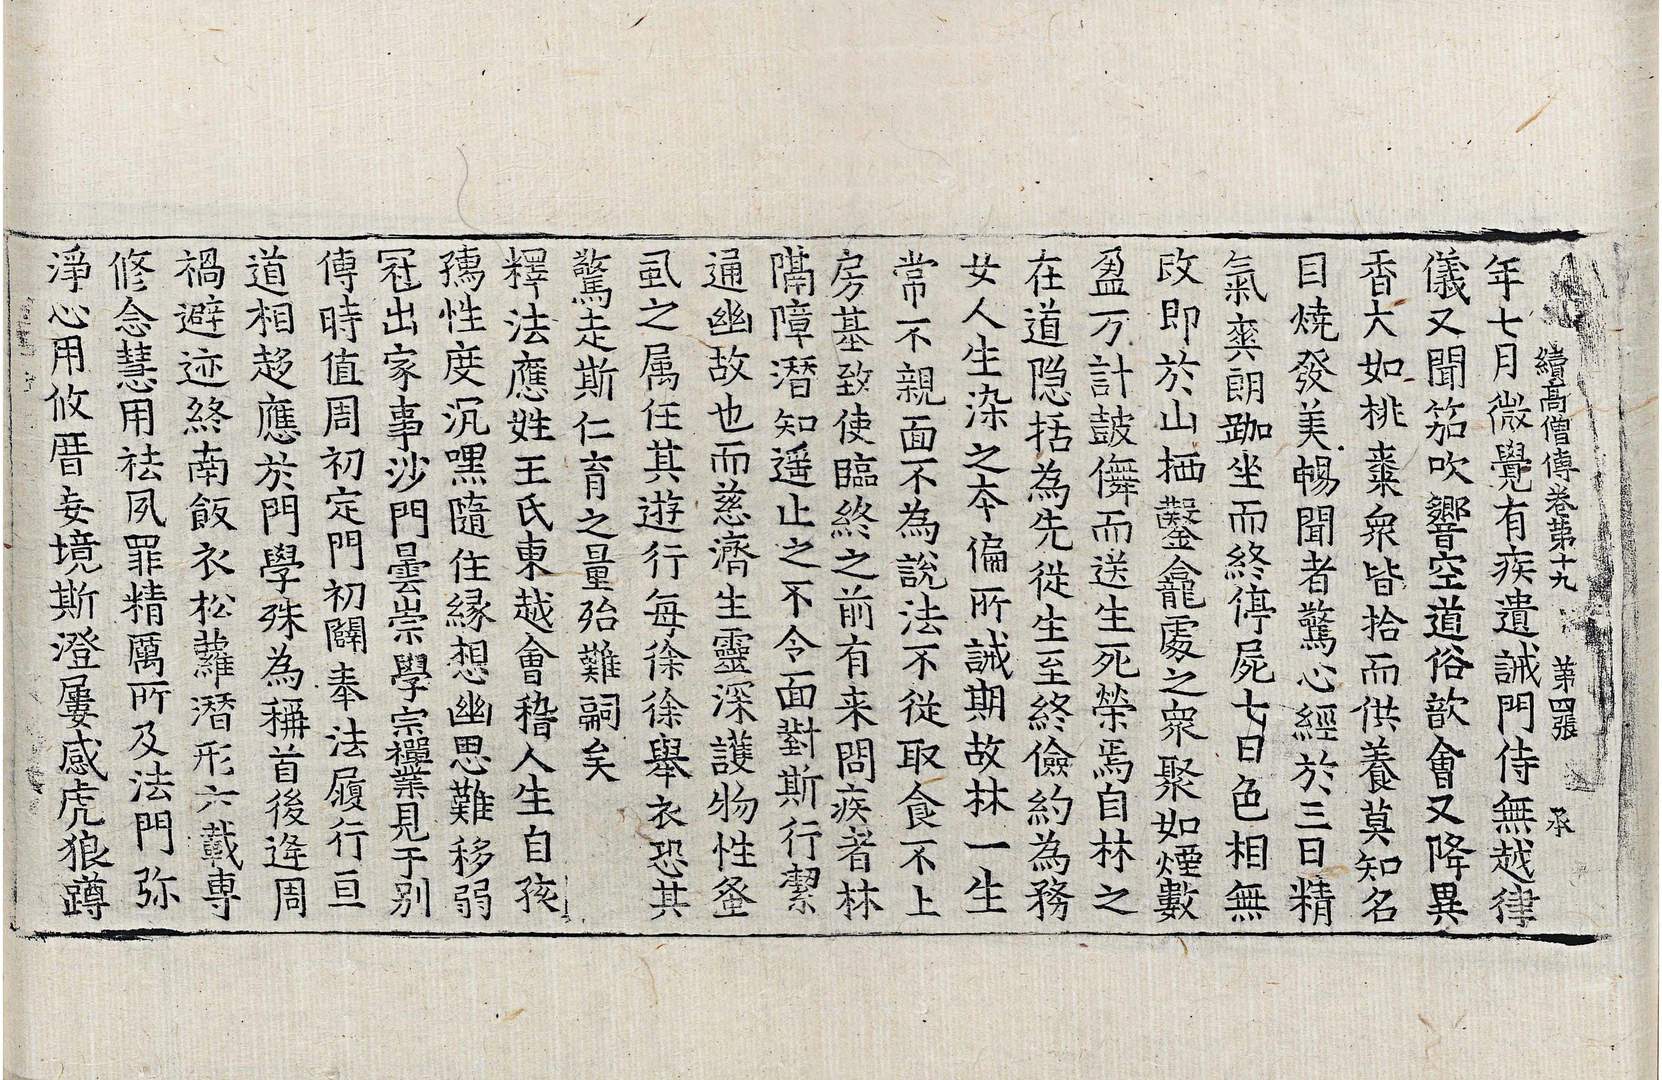 續高僧傳卷第十九 第四張 承
年七月微覺有疾遺誡門侍無越律
儀又聞笳吹響空道俗歆會又降異
香大如桃棗衆皆拾而供養莫知名
目燒發美暢聞者驚心經於三日精
氣爽朗跏坐而終停屍七日色相無
改即於山栖鑿龕處之衆聚如煙數
盈万計鼓儛而送生死榮焉自林之
在道隱括為先從生至終儉約為務
女人生染之夲偏所誡期故林一生
常不親面不為說法不從取食不上
房基致使臨終之前有来問疾者林
隔障潜知遥止之不令面對斯行潔
通幽故也而慈濟生靈深護物性蚤
虱之属任其遊行每徐徐舉衣恐其
驚走斯仁育之量殆難嗣矣
釋法應姓王氏東越會稽人生自孩
孺性度沉嘿隨住緣想幽思難移弱
冠出家事沙門曇崇學宗禪業見于別
傳時值周初定門初闢奉法履行亘
道相趍應於門學殊為稱首後逄周
禍避迹終南飯衣松蘿潜形六載專
修念慧用祛夙罪精厲所及法門弥
淨心用攸厝妄境斯澄屢感虎狼蹲